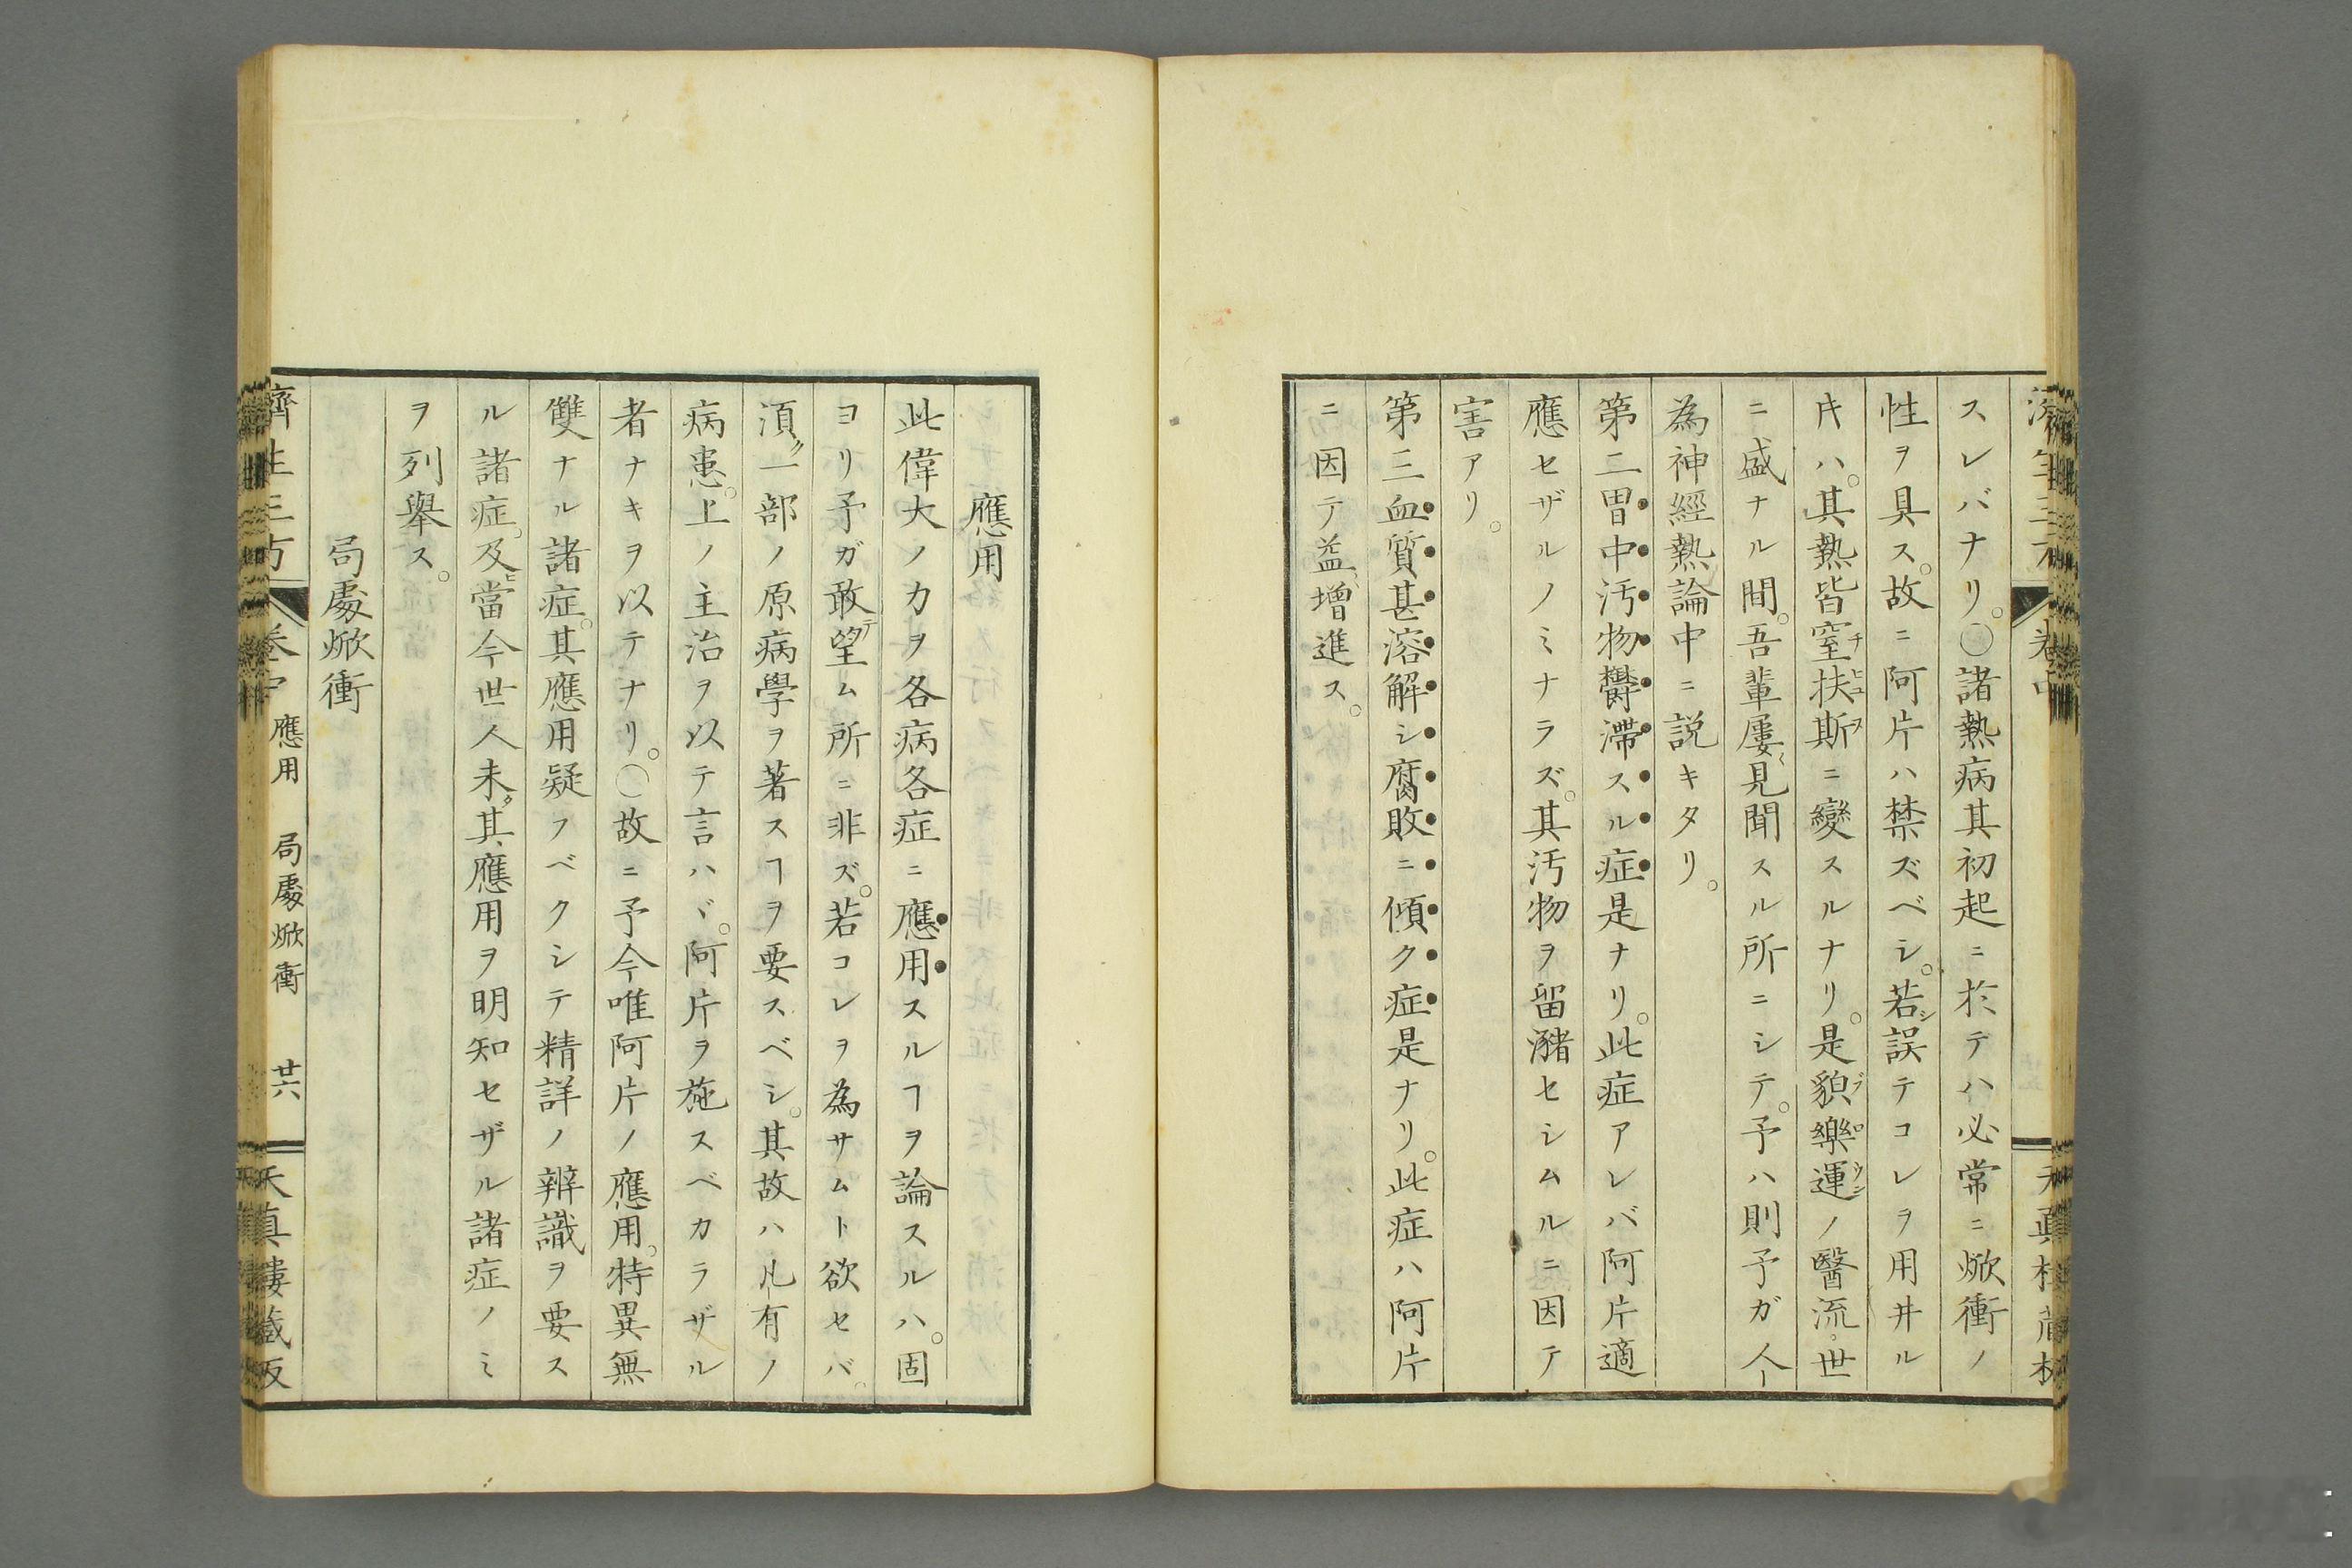 スレバナリ。〇諸熱病其初起ニ於テハ必常ニ焮衝ノ
性ヲ具ス。故ニ阿片ハ禁ズベシ。若シ誤テコレヲ用井ル
𪜈ハ。其熱皆窒扶斯チヒユスニ變スルナリ。是貌樂運ブロウンノ醫流。世
ニ盛ナル間。吾輩屢〻見聞スル所ニシテ。予ハ則予ガ人
為神經熱論中ニ説キタリ。
第二胃中汚物鬱滯スル症是ナリ。此症アレバ阿片適
應セザルノミナラズ。其汚物ヲ留瀦セシムルニ因テ
害アリ。
第三血質甚溶解シ腐敗ニ傾ク症是ナリ。此症ハ阿片
ニ因テ益〻增進ス。
應用
此偉大ノ力ヲ各病各症ニ應用スルヿヲ論スルハ。固
ヨリ予ガ敢テ望ム所ニ非ズ。若コレヲ為サムト欲セバ。
須〻一部ノ原病學ヲ著スヿヲ要スベシ。其故ハ凡有ノ
病患。上ノ主治ヲ以テ言ハヾ。阿片ヲ施スベカラザル
者ナキヲ以テナリ。〇故ニ予今唯阿片ノ應用。特異無
雙ナル諸症。其應用疑フベクシテ精詳ノ辨識ヲ要ス
ル諸症。及ヒ當今世人未タ其應用ヲ明知セザル諸症ノミ
ヲ列擧ス。
局處焮衝
濟生三方 卷中 應用 局處焮衝 廿六 天真樓藏版